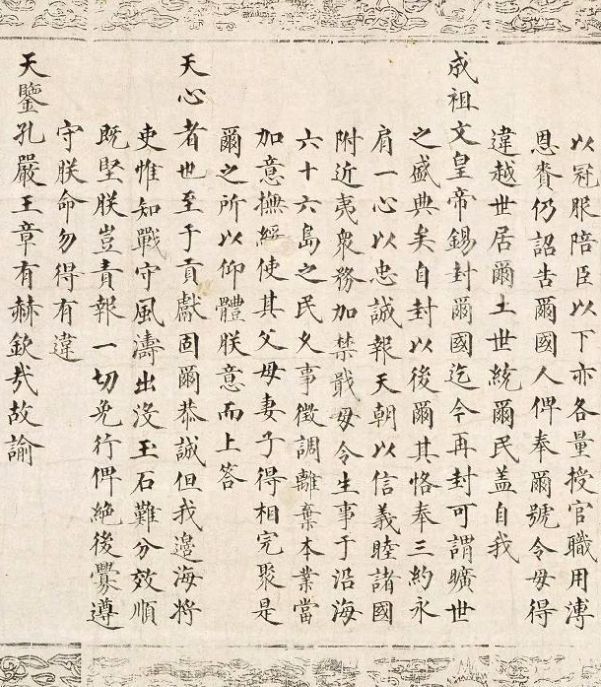 以冠服陪臣以下亦各量授官職用溥
恩賚仍詔告爾國人俾奉爾號令毋得
違越世居爾土世統爾民蓋自我
成祖文皇帝錫封爾國迄今再封可謂曠世
之盛典矣自封以後爾其恪奉三約永
肩一心以忠誠報天朝以信義睦諸國
附近夷衆務加禁戢毋令生事于沿海
六十六島之民久事徵調離棄本業當
加意撫綏使其父母妻子得相完聚是
爾之所以仰體朕意而上答
天心者也至于貢獻固爾恭誠但我邊海將
吏惟知戰守風濤出没玉石難分效順
既堅朕豈責報一切免行俾絶後釁遵
守朕命勿得有違
天鑒孔嚴王章有赫欽哉故諭